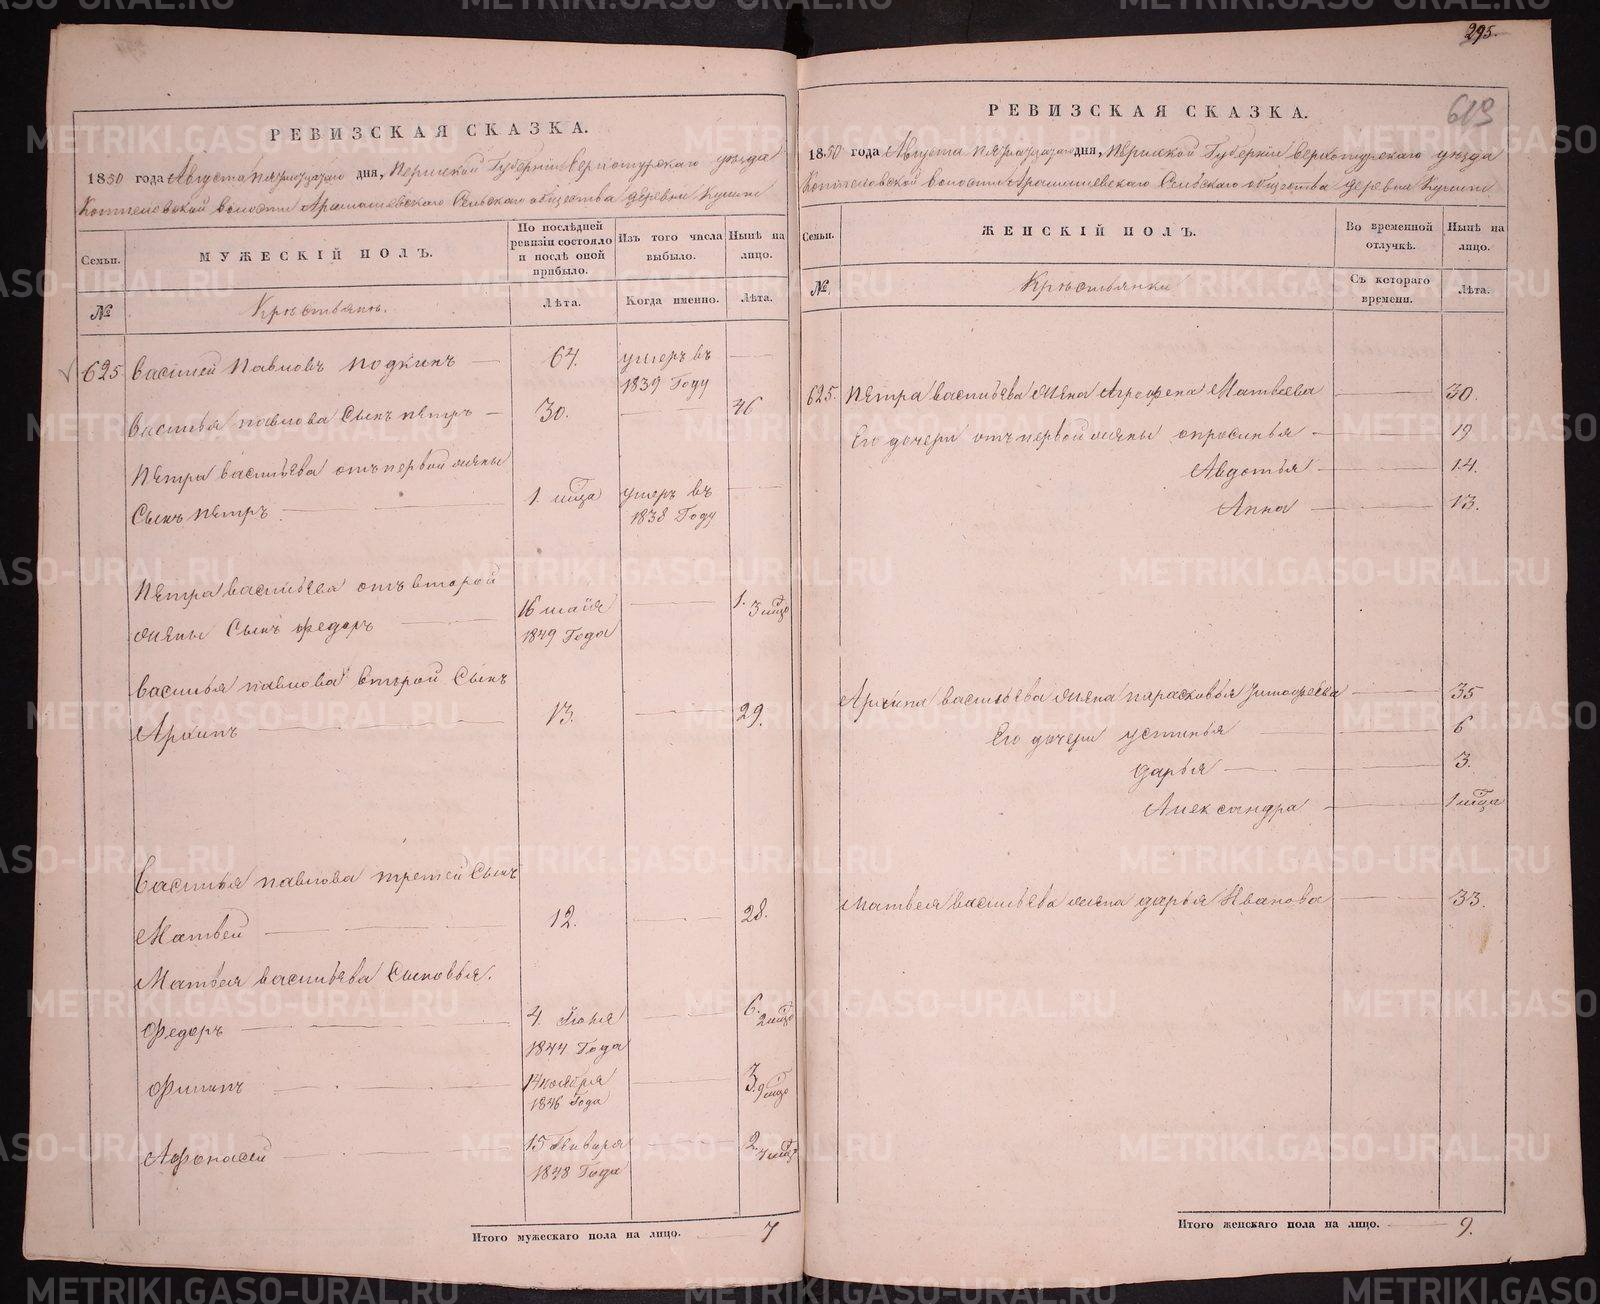 295.
613
РЕВИЗСКАЯ СКАЗКА.
1850 года Августа пятнадцатаго дня, Пермской Губерніи Верхотурскаго уѣзда
волости Арамашевскаго Сельскаго общества деревни
Семьи.
МУЖЕСКІЙ ПОЛЪ.
По послѣдней ревизіи состояло и послѣ оной прибыло.
Изъ того числа выбыло.
Нынѣ на лицо.
№
Крѣстьяне.
Лѣта.
Когда именно.
Лѣта.
625 Василей Павловъ Подкинъ — 64. умеръ въ 1839 Году —
Василья Павлова Сынъ Петръ — 30. — 46
Петра Васильева отъ первой жены
Сынъ Петръ — 1. мѣца умеръ въ 1838 Году —
Петра Васильева отъ второй
жены Сынъ Федоръ — 16 майя 1849 Года — 1. 3 мѣцо
Василья Павлова второй Сынъ
Архипъ — 13. — 29.
Василья Павлова третей Сынъ
Матвей — 12. — 28.
Матвея Васильева Сыновья.
Федоръ — 4. Іюня 1844 Года — 6. 2 мѣцо
Филипъ — 14 ноября 1846 Года — 3. 9 мѣцо
Афонасей — 15 Генваря 1848 Года — 2. 7 мѣц
Итого мужескаго пола на лицо. — 7
РЕВИЗСКАЯ СКАЗКА.
1850 года Августа пятнадцатаго дня, Пермской Губерніи Верхотурскаго уѣзда
волости Арамашевскаго Сельскаго общества деревни
Семьи.
ЖЕНСКІЙ ПОЛЪ.
Во временной отлучкѣ.
Нынѣ на лицо.
№.
Крѣстьянки
Съ котораго времени.
Лѣта.
625. Петра Васильева жена Агрофена Матвеева — 30.
Его дочери отъ первой жены опросинья — 19
Авдотья — 14.
Анна — 13.
Архипа Васильева жена парасковья Тимофѣева — 35
Его дочери устинья — 6
дарья — 3.
Александра — 1 мѣца
Матвея Васильева жена дарья Иванова — 33.
Итого женскаго пола на лицо. — 9.
METRIKI.GASO-URAL.RU